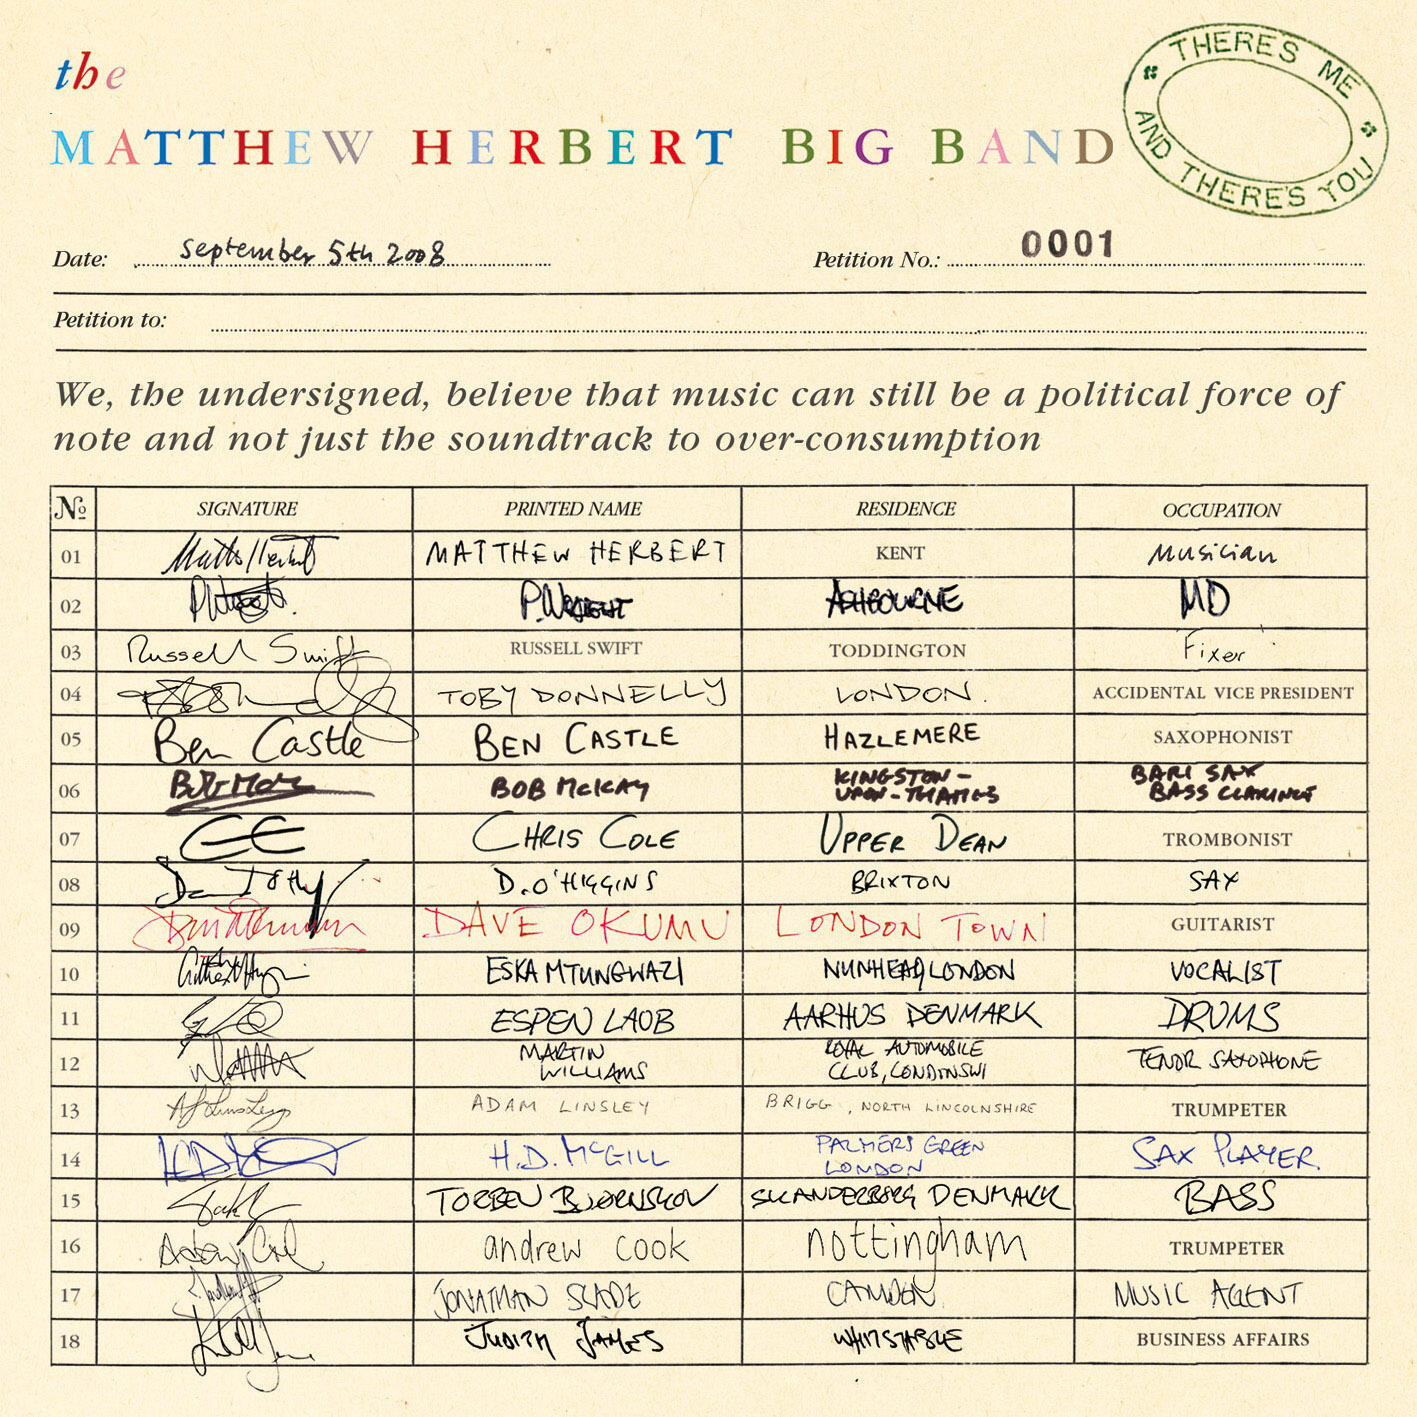 the
MATTHEW HERBERT BIG BAND
THERES ME
AND THERE'S YOU
Date: September 5th 2008 Petition No.: 0001
Petition to:
We, the undersigned, believe that music can still be a political force of
note and not just the soundtrack to over-consumption
№ SIGNATURE PRINTED NAME RESIDENCE OCCUPATION
01 MATTHEW HERBERT KENT musician
02 P.WRIGHT ASHBOURNE MD
03 Russell Swift RUSSELL SWIFT TODDINGTON Fixer
04 TOBY DONNELLY LONDON. ACCIDENTAL VICE PRESIDENT
05 Ben Castle BEN CASTLE HAZLEMERE SAXOPHONIST
06 BOB McKAY KINGSTON-
UPON-THAMES BARI SAX
BASS CLARINET
07 CHRIS COLE UPPER DEAN TROMBONIST
08 D.O'HIGGINS BRIXTON SAX
09 DAVE OKUMU LONDON TOWN GUITARIST
10 ESKA MTUNGWAZI NUNHEAD, LONDON VOCALIST
11 ESPEN LAUB AARHUS DENMARK DRUMS
12 MARTIN
WILLIAMS ROYAL AUTOMOBILE
CLUB, LONDON SW1 TENOR SAXOPHONE
13 ADAM LINSLEY BRIGG, NORTH LINCOLNSHIRE TRUMPETER
14 H.D. McGILL PALMERS GREEN
LONDON SAX PLAYER.
15 TORBEN BJØRNSKOV SKANDERBORG DENMARK BASS
16 andrew cook nottingham TRUMPETER
17 JONATHAN SLADE CAMDEN MUSIC AGENT
18 JUDITH JAMES WHITSTABLE BUSINESS AFFAIRS